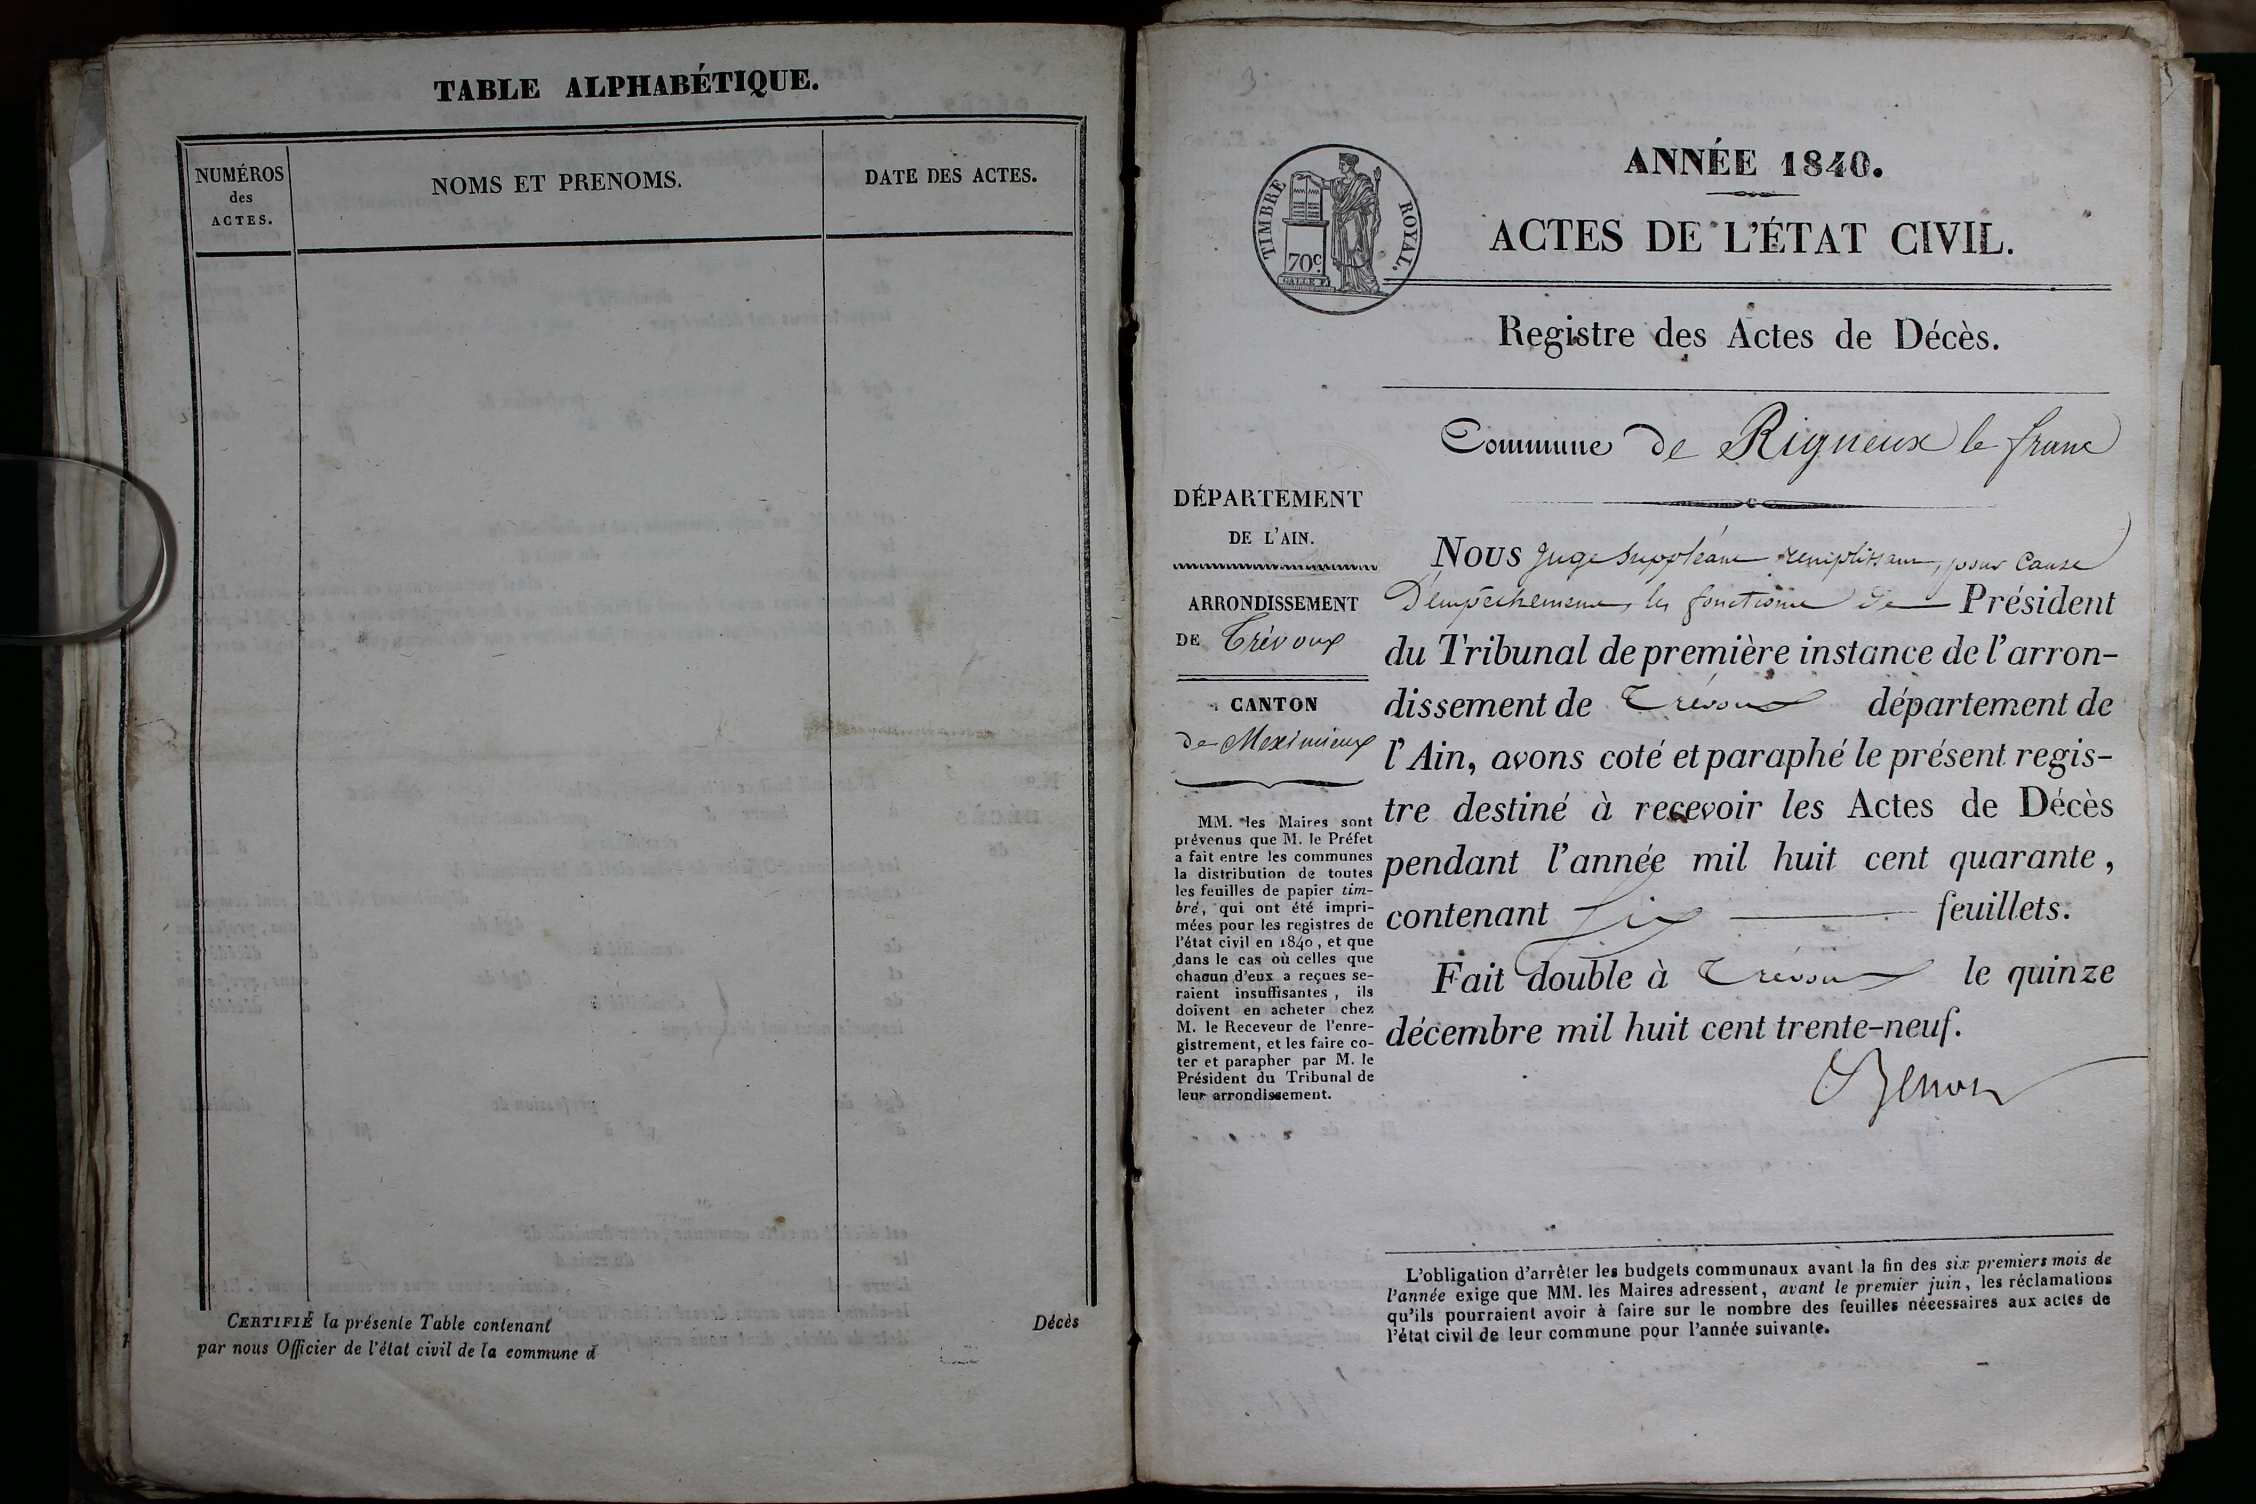 TABLE ALPHABÉTIQUE.
NUMÉROS
des
ACTES.
NOMS ET PRENOMS.
DATE DES ACTES.
CERTIFIÉ la présente Table contenant Décès
par nous Officier de l'état civil de la commune d
3.
TIMBRE ROYAL.
70c.
ANNÉE 1840.
ACTES DE L'ÉTAT CIVIL.
Registre des Actes de Décès.
Commune de Rigneux le franc
DÉPARTEMENT
DE L'AIN.
ARRONDISSEMENT
DE Trévoux
CANTON
de Meximieux
MM. les Maires sont
prévenus que M. le Préfet
a fait entre les communes
la distribution de toutes
les feuilles de papier tim-
bré, qui ont été impri-
mées pour les registres de
l'état civil en 1840, et que
dans le cas où celles que
chacun d'eux a reçues se-
raient insuffisantes, ils
doivent en acheter chez
M. le Receveur de l'enre-
gistrement, et les faire co-
ter et parapher par M. le
Président du Tribunal de
leur arrondissement.
NOUS Juge Suppléant remplissant, pour Cause
D'empêchement, les fonctions de Président
du Tribunal de première instance de l'arron-
dissement de Trévoux département de
l'Ain, avons coté et paraphé le présent regis-
tre destiné à recevoir les Actes de Décès
pendant l'année mil huit cent quarante,
contenant Six feuillets.
Fait double à Trévoux le quinze
décembre mil huit cent trente-neuf.
L'obligation d'arrêter les budgets communaux avant la fin des six premiers mois de
l'année exige que MM. les Maires adressent, avant le premier juin, les réclamations
qu'ils pourraient avoir à faire sur le nombre des feuilles nécessaires aux actes de
l'état civil de leur commune pour l'année suivante.